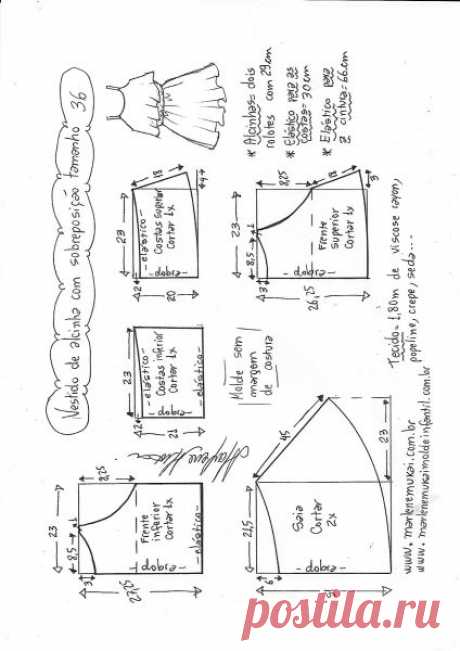 Vestido de alcinha com sobreposição tamanho 36
* Alcinhas= dois
rolotes com 29cm
* Elástico para as
costas= 30cm
* Elástico para
a cintura= 66cm
23
-elástico-
Costas superior
Cortar 1x
-dobra-
2
20
18
4
23
8,5
1
8,25
3
18
3
Frente
superior
Cortar 1x
-dobra-
26,25
23
-elástico-
Costas inferior
Cortar 1x
-elástico-
-dobra-
2
21
Molde sem
margem
de costura
Tecido= 1,80m de viscose rayon,
popeline, crepe, seda...
23
8,5
1
8,25
3
Frente
inferior
Cortar 1x
-dobra-
-elástico-
27,25
21,5
45
23
6
Saia
Cortar
2x
-dobra-
www.marlenemukai.com.br
www.marlenemukaimoldeinfantil.com.br
postila.ru